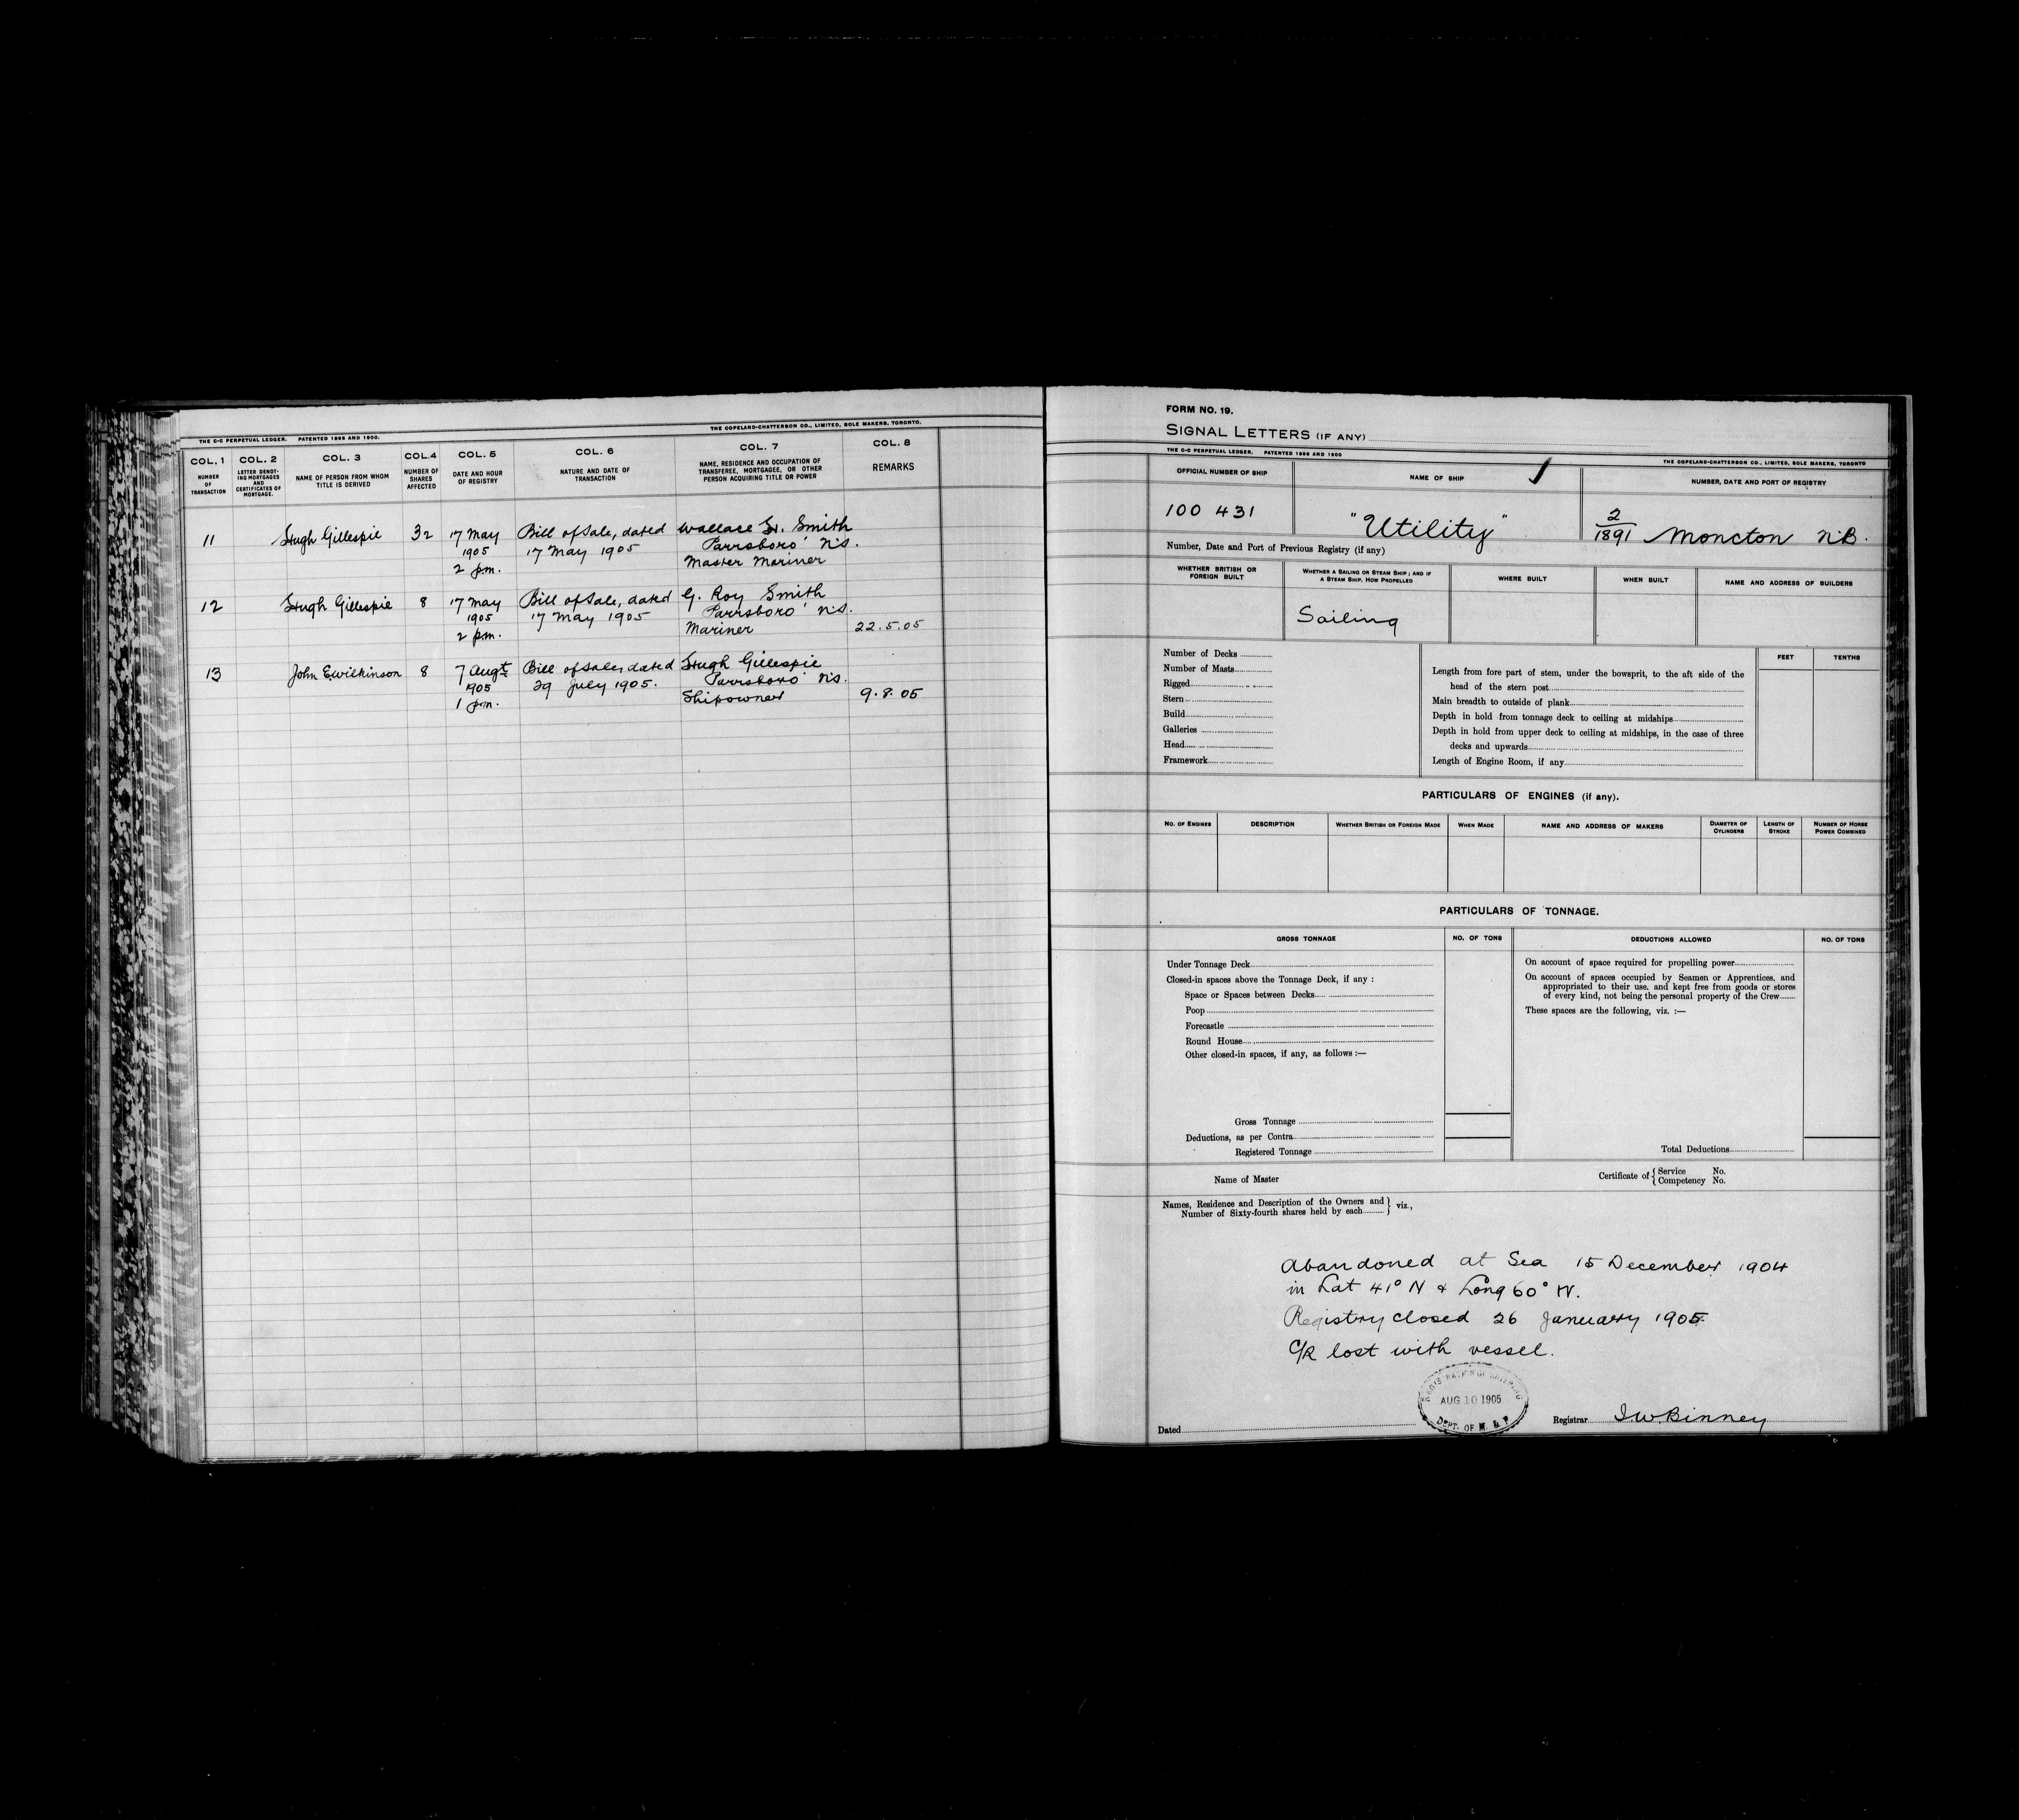 THE C-C PERPETUAL LEDGER. PATENTED 1896 AND 1900.
THE COPELAND-CHATTERSON CO., LIMITED, SOLE MAKERS, TORONTO.
COL. 1 COL. 2 COL. 3 COL. 4 COL. 5 COL. 6 COL. 7 COL. 8
NUMBER OF TRANSACTION
LETTER DENOTING MORTGAGES AND CERTIFICATES OF MORTGAGE.
NAME OF PERSON FROM WHOM TITLE IS DERIVED
NUMBER OF SHARES AFFECTED
DATE AND HOUR OF REGISTRY
NATURE AND DATE OF TRANSACTION
NAME, RESIDENCE AND OCCUPATION OF TRANSFEREE, MORTGAGEE, OR OTHER PERSON ACQUIRING TITLE OR POWER
REMARKS
11 Hugh Gillespie 32 17 May Bill of Sale, dated Wallace Smith
1905 17 May 1905 Parrsboro' N.S.
2 p.m. Master Mariner
12 Hugh Gillespie 8 17 May Bill of Sale, dated G. Roy Smith
1905 17 May 1905 Parrsboro' N.S.
2 p.m. Mariner 22.5.05
13 John E Wilkinson 8 7 Augt Bill of Sale, dated Hugh Gillespie
1905 29 July 1905. Parrsboro' N.S.
1 p.m. Shipowner 9.8.05
FORM NO. 19.
SIGNAL LETTERS (IF ANY)
THE C-C PERPETUAL LEDGER. PATENTED 1896 AND 1900
THE COPELAND-CHATTERSON CO., LIMITED, SOLE MAKERS, TORONTO
OFFICIAL NUMBER OF SHIP NAME OF SHIP NUMBER, DATE AND PORT OF REGISTRY
100 431 "Utility" 2/1891 Moncton N.B.
Number, Date and Port of Previous Registry (if any)
WHETHER BRITISH OR FOREIGN BUILT
WHETHER A SAILING OR STEAM SHIP; AND IF A STEAM SHIP, HOW PROPELLED
WHERE BUILT
WHEN BUILT
NAME AND ADDRESS OF BUILDERS
Sailing
Number of Decks
Number of Masts
Rigged
Stern
Build
Galleries
Head
Framework
FEET TENTHS
Length from fore part of stem, under the bowsprit, to the aft side of the
head of the stern post
Main breadth to outside of plank
Depth in hold from tonnage deck to ceiling at midships
Depth in hold from upper deck to ceiling at midships, in the case of three
decks and upwards
Length of Engine Room, if any
PARTICULARS OF ENGINES (if any).
NO. OF ENGINES
DESCRIPTION
WHETHER BRITISH OR FOREIGN MADE
WHEN MADE
NAME AND ADDRESS OF MAKERS
DIAMETER OF CYLINDERS
LENGTH OF STROKE
NUMBER OF HORSE POWER COMBINED
PARTICULARS OF TONNAGE.
GROSS TONNAGE NO. OF TONS DEDUCTIONS ALLOWED NO. OF TONS
Under Tonnage Deck
Closed-in spaces above the Tonnage Deck, if any :
Space or Spaces between Decks
Poop
Forecastle
Round House
Other closed-in spaces, if any, as follows :—
Gross Tonnage
Deductions, as per Contra
Registered Tonnage
On account of space required for propelling power
On account of spaces occupied by Seamen or Apprentices, and
appropriated to their use, and kept free from goods or stores
of every kind, not being the personal property of the Crew
These spaces are the following, viz. :—
Total Deductions
Name of Master
Certificate of { Service No.
{ Competency No.
Names, Residence and Description of the Owners and } viz.,
Number of Sixty-fourth shares held by each
Abandoned at Sea 15 December 1904
in Lat 41° N & Long 60° W.
Registry closed 26 January 1905.
C/R lost with vessel.
AUG 10 1905
DEPT. OF M. & F.
Dated
Registrar I W Binney